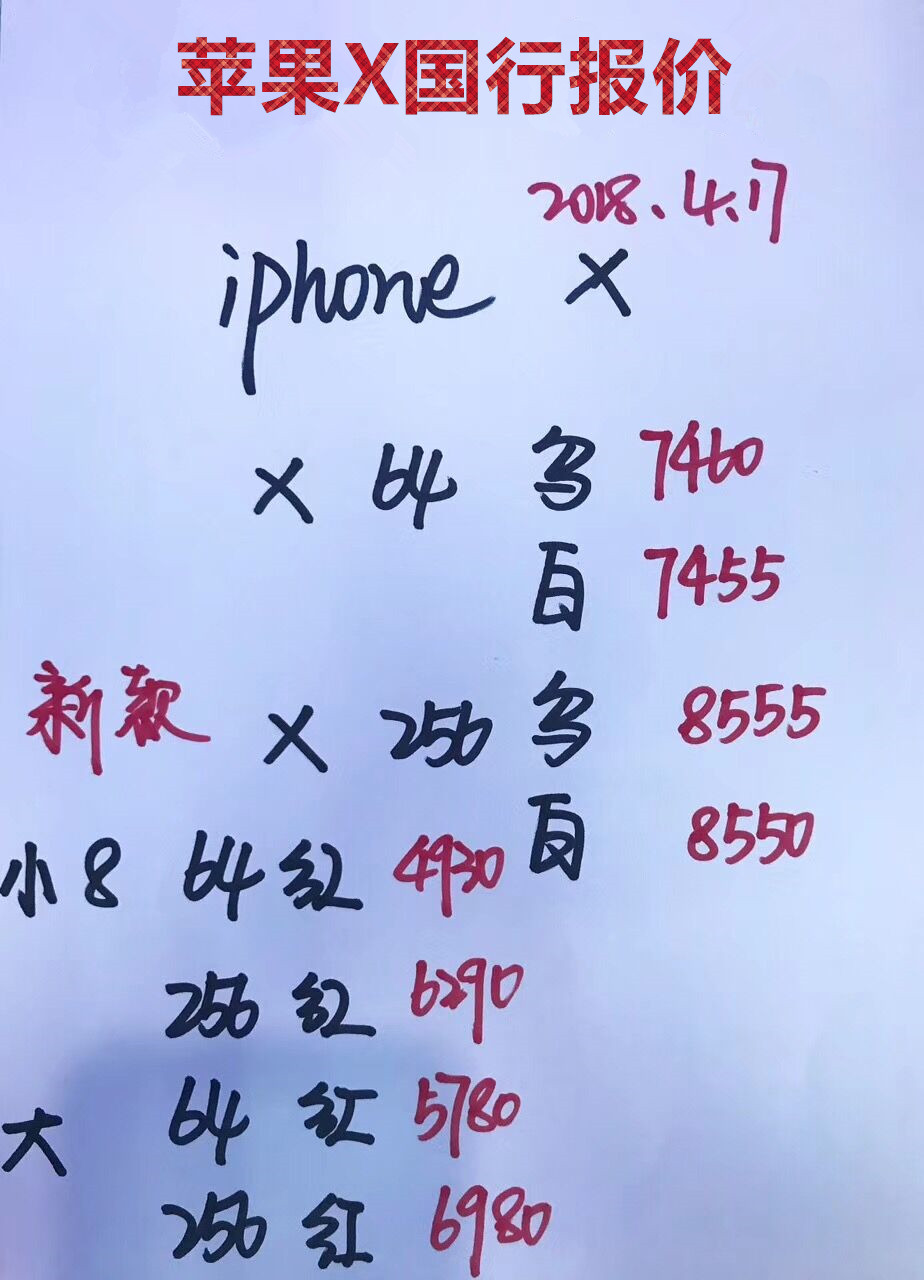 苹果X国行报价
2018.4.17
iphone X
X 64 乌 7460
白 7455
新款 X 256 乌 8555
白 8550
小8 64 红 4930
256 红 6290
大 64 红 5780
256 红 6980